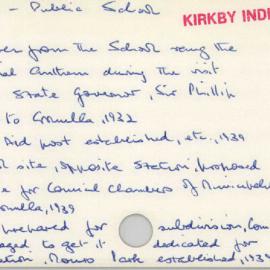 - Public School
KIRKBY INDE
ren from the School sang the
al Anthem during the visit
State Governor, Sir Phillip
to Cronulla, 1932
Aid post established, etc., 1939
site, opposite Station, proposed
e for Council Chambers of
onulla, 1939
prepared for subdivision, Com
aged to get it dedicated for
ation. Park established, 1934